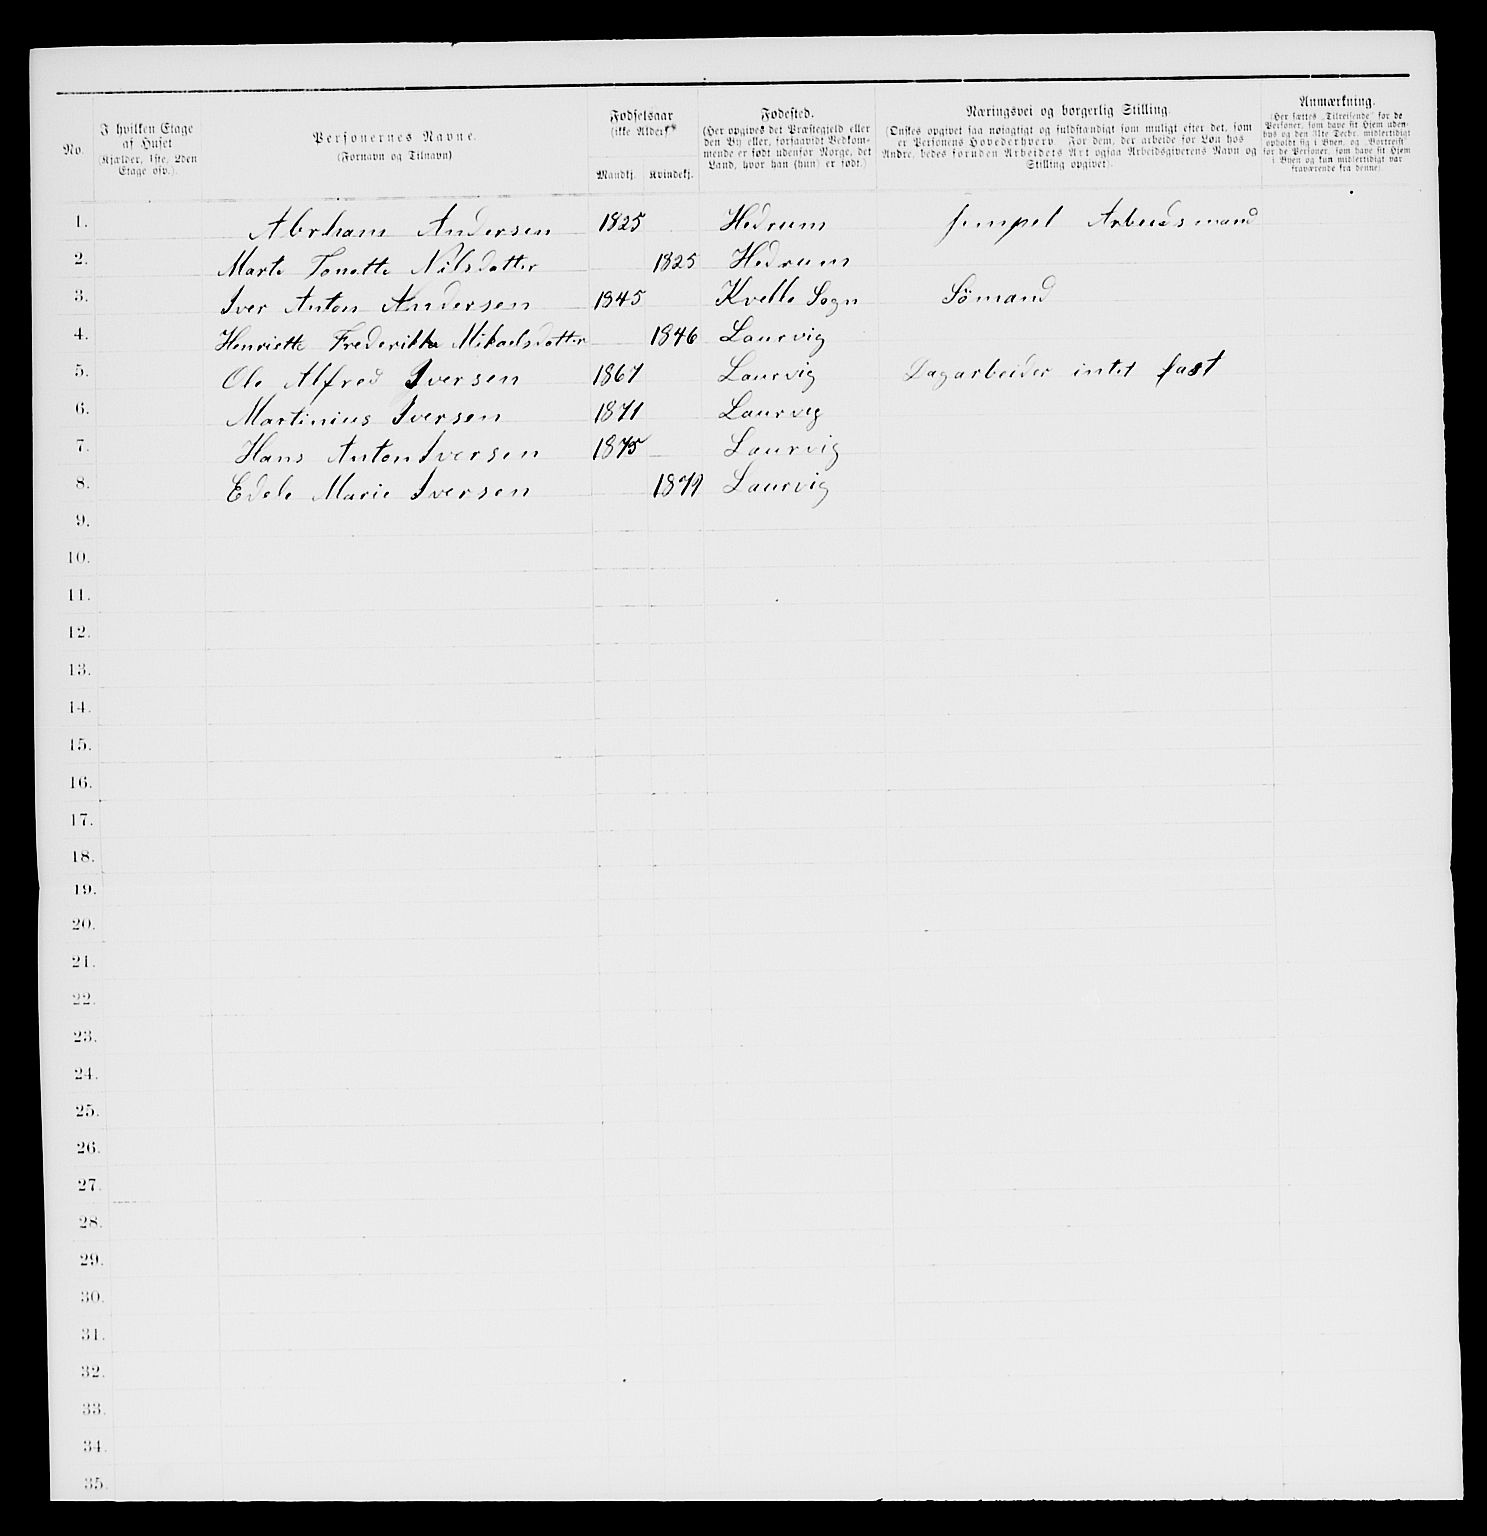 No.
I hvilken Etage
af Huset
(Kjælder, 1ste, 2den
Etage osv.).
Personernes Navne.
(Fornavn og Tilnavn)
Fødselsaar
(ikke Alder)
Mandkj. Kvindekj.
Fødested.
(Her opgives det Præstegjeld eller
den By eller, forsaavidt Vedkom-
mende er født udenfor Norge, det
Land, hvor han (hun) er født.)
Næringsvei og borgerlig Stilling.
(Ønskes opgivet saa nøiagtigt og fuldstændigt som muligt efter det, som
er Personens Hovederhverv. For dem, der arbeide for Løn hos
Andre, bedes foruden Arbeidets Art ogsaa Arbeidsgiverens Navn og
Stilling opgivet).
Anmærkning.
(Her sættes „Tilreisende“ for de
Personer, som have sit Hjem uden-
bys og den 31te Decbr. midlertidigt
opholdt sig i Byen, og „Bortreist“
for de Personer, som have sit Hjem
i Byen og kun midlertidigt var
fraværende fra denne).
1. Abrham Andersen 1825 Hedrum simpel Arbeidsmand
2. Marte Tonette Nilsdatter 1825 Hedrum
3. Iver Anton Andersen 1845 Kvelle Sogn Sömand
4. Henriette Frederikke Mikaelsdatter 1846 Laurvig
5. Ole Alfred Iversen 1867 Laurvig Dagarbeider intet fast
6. Martinius Iversen 1871 Laurvig
7. Hans Anton Iversen 1875 Laurvig
8. Edele Marie Iversen 1879 Laurvig
9.
10.
11.
12.
13.
14.
15.
16.
17.
18.
19.
20.
21.
22.
23.
24.
25.
26.
27.
28.
29.
30.
31.
32.
33.
34.
35.